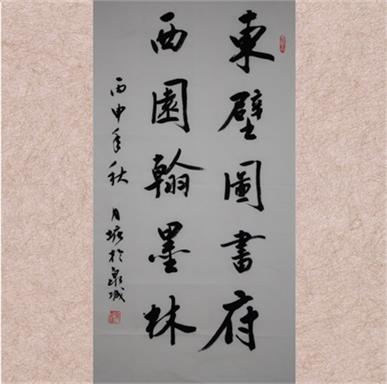 東壁圖書府
西園翰墨林
丙申年秋月塘於泉城